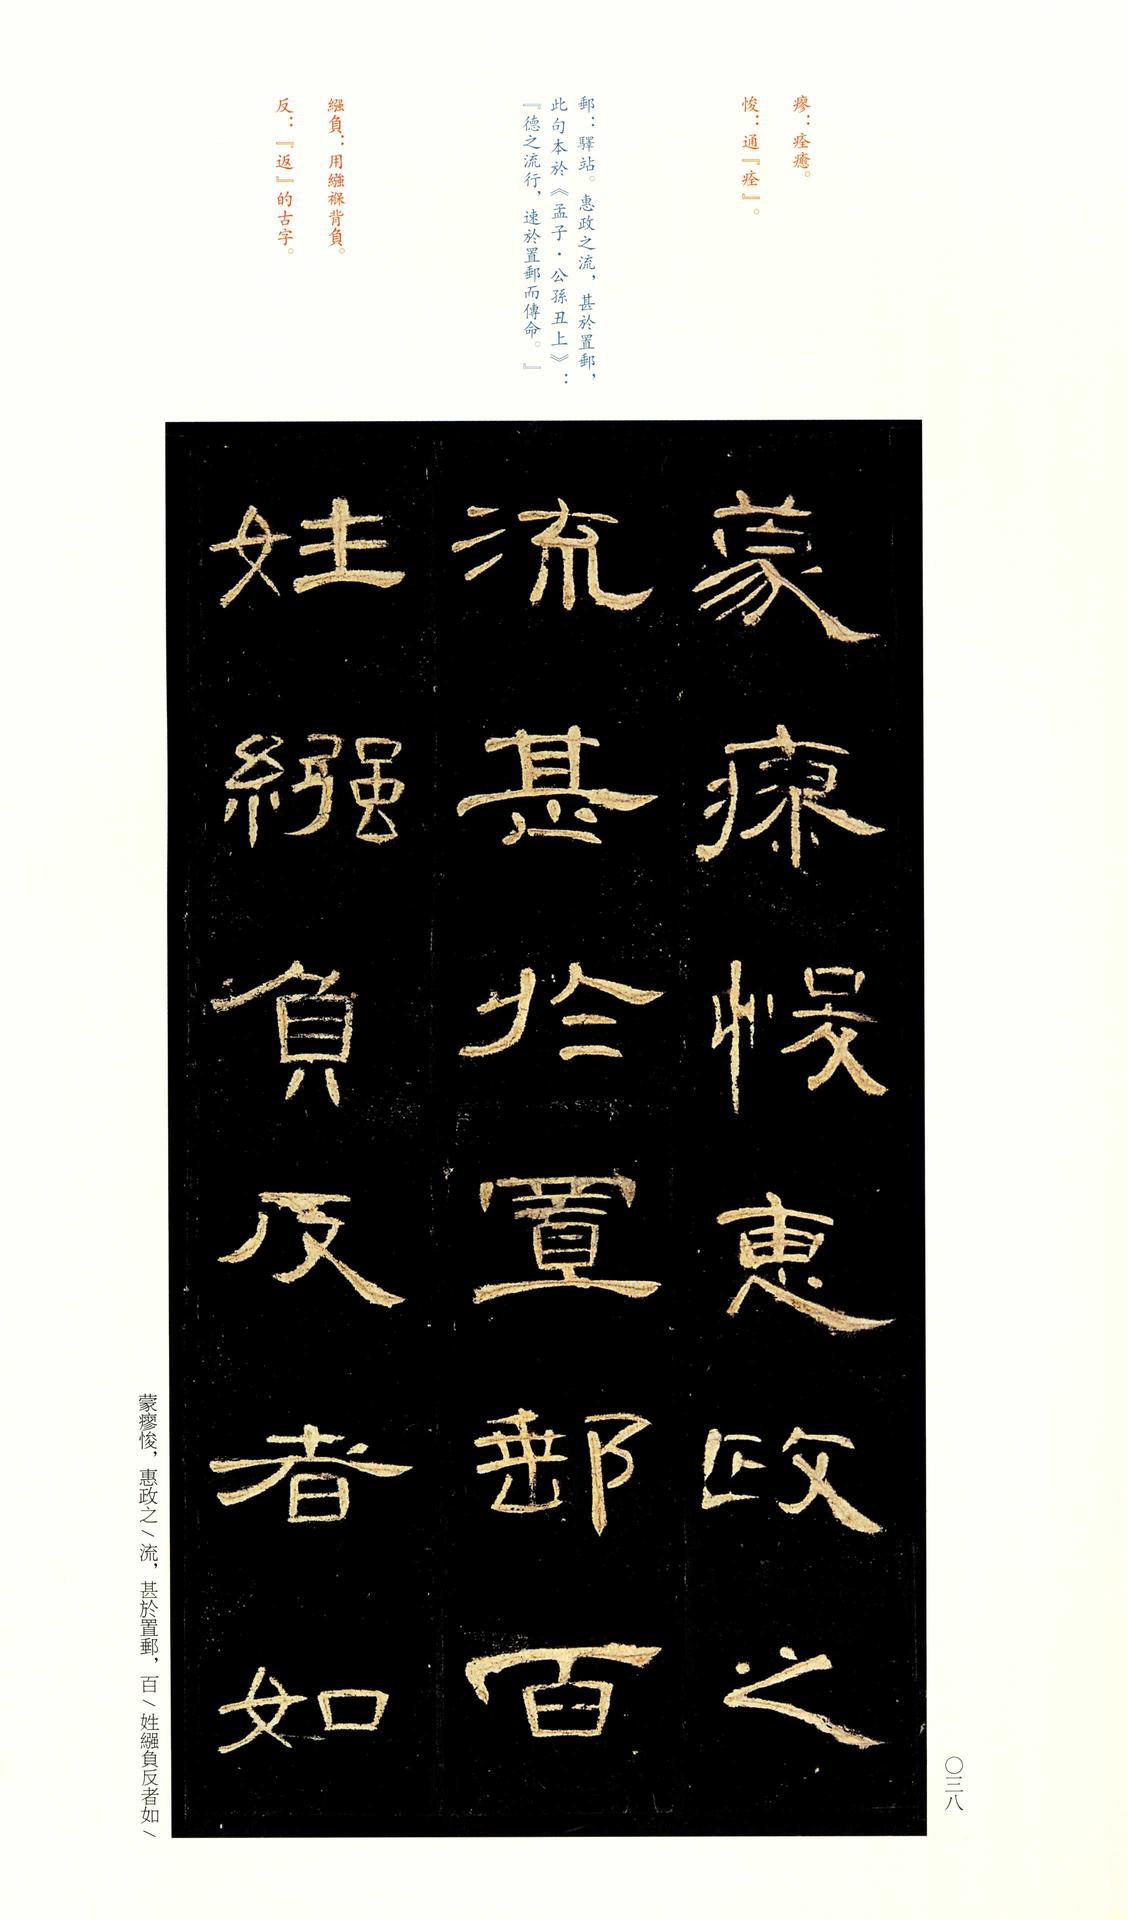 瘳：痊癒。
悛：通『痊』。
郵：驛站。惠政之流，甚於置郵，
此句本於《孟子·公孫丑上》：
『德之流行，速於置郵而傳命。』
繈負：用繈褓背負。
反：『返』的古字。
蒙瘳悛惠政之
流甚於置郵百
姓繈負反者如
蒙瘳悛，惠政之\流，甚於置郵，百\姓繈負反者如\
〇三八